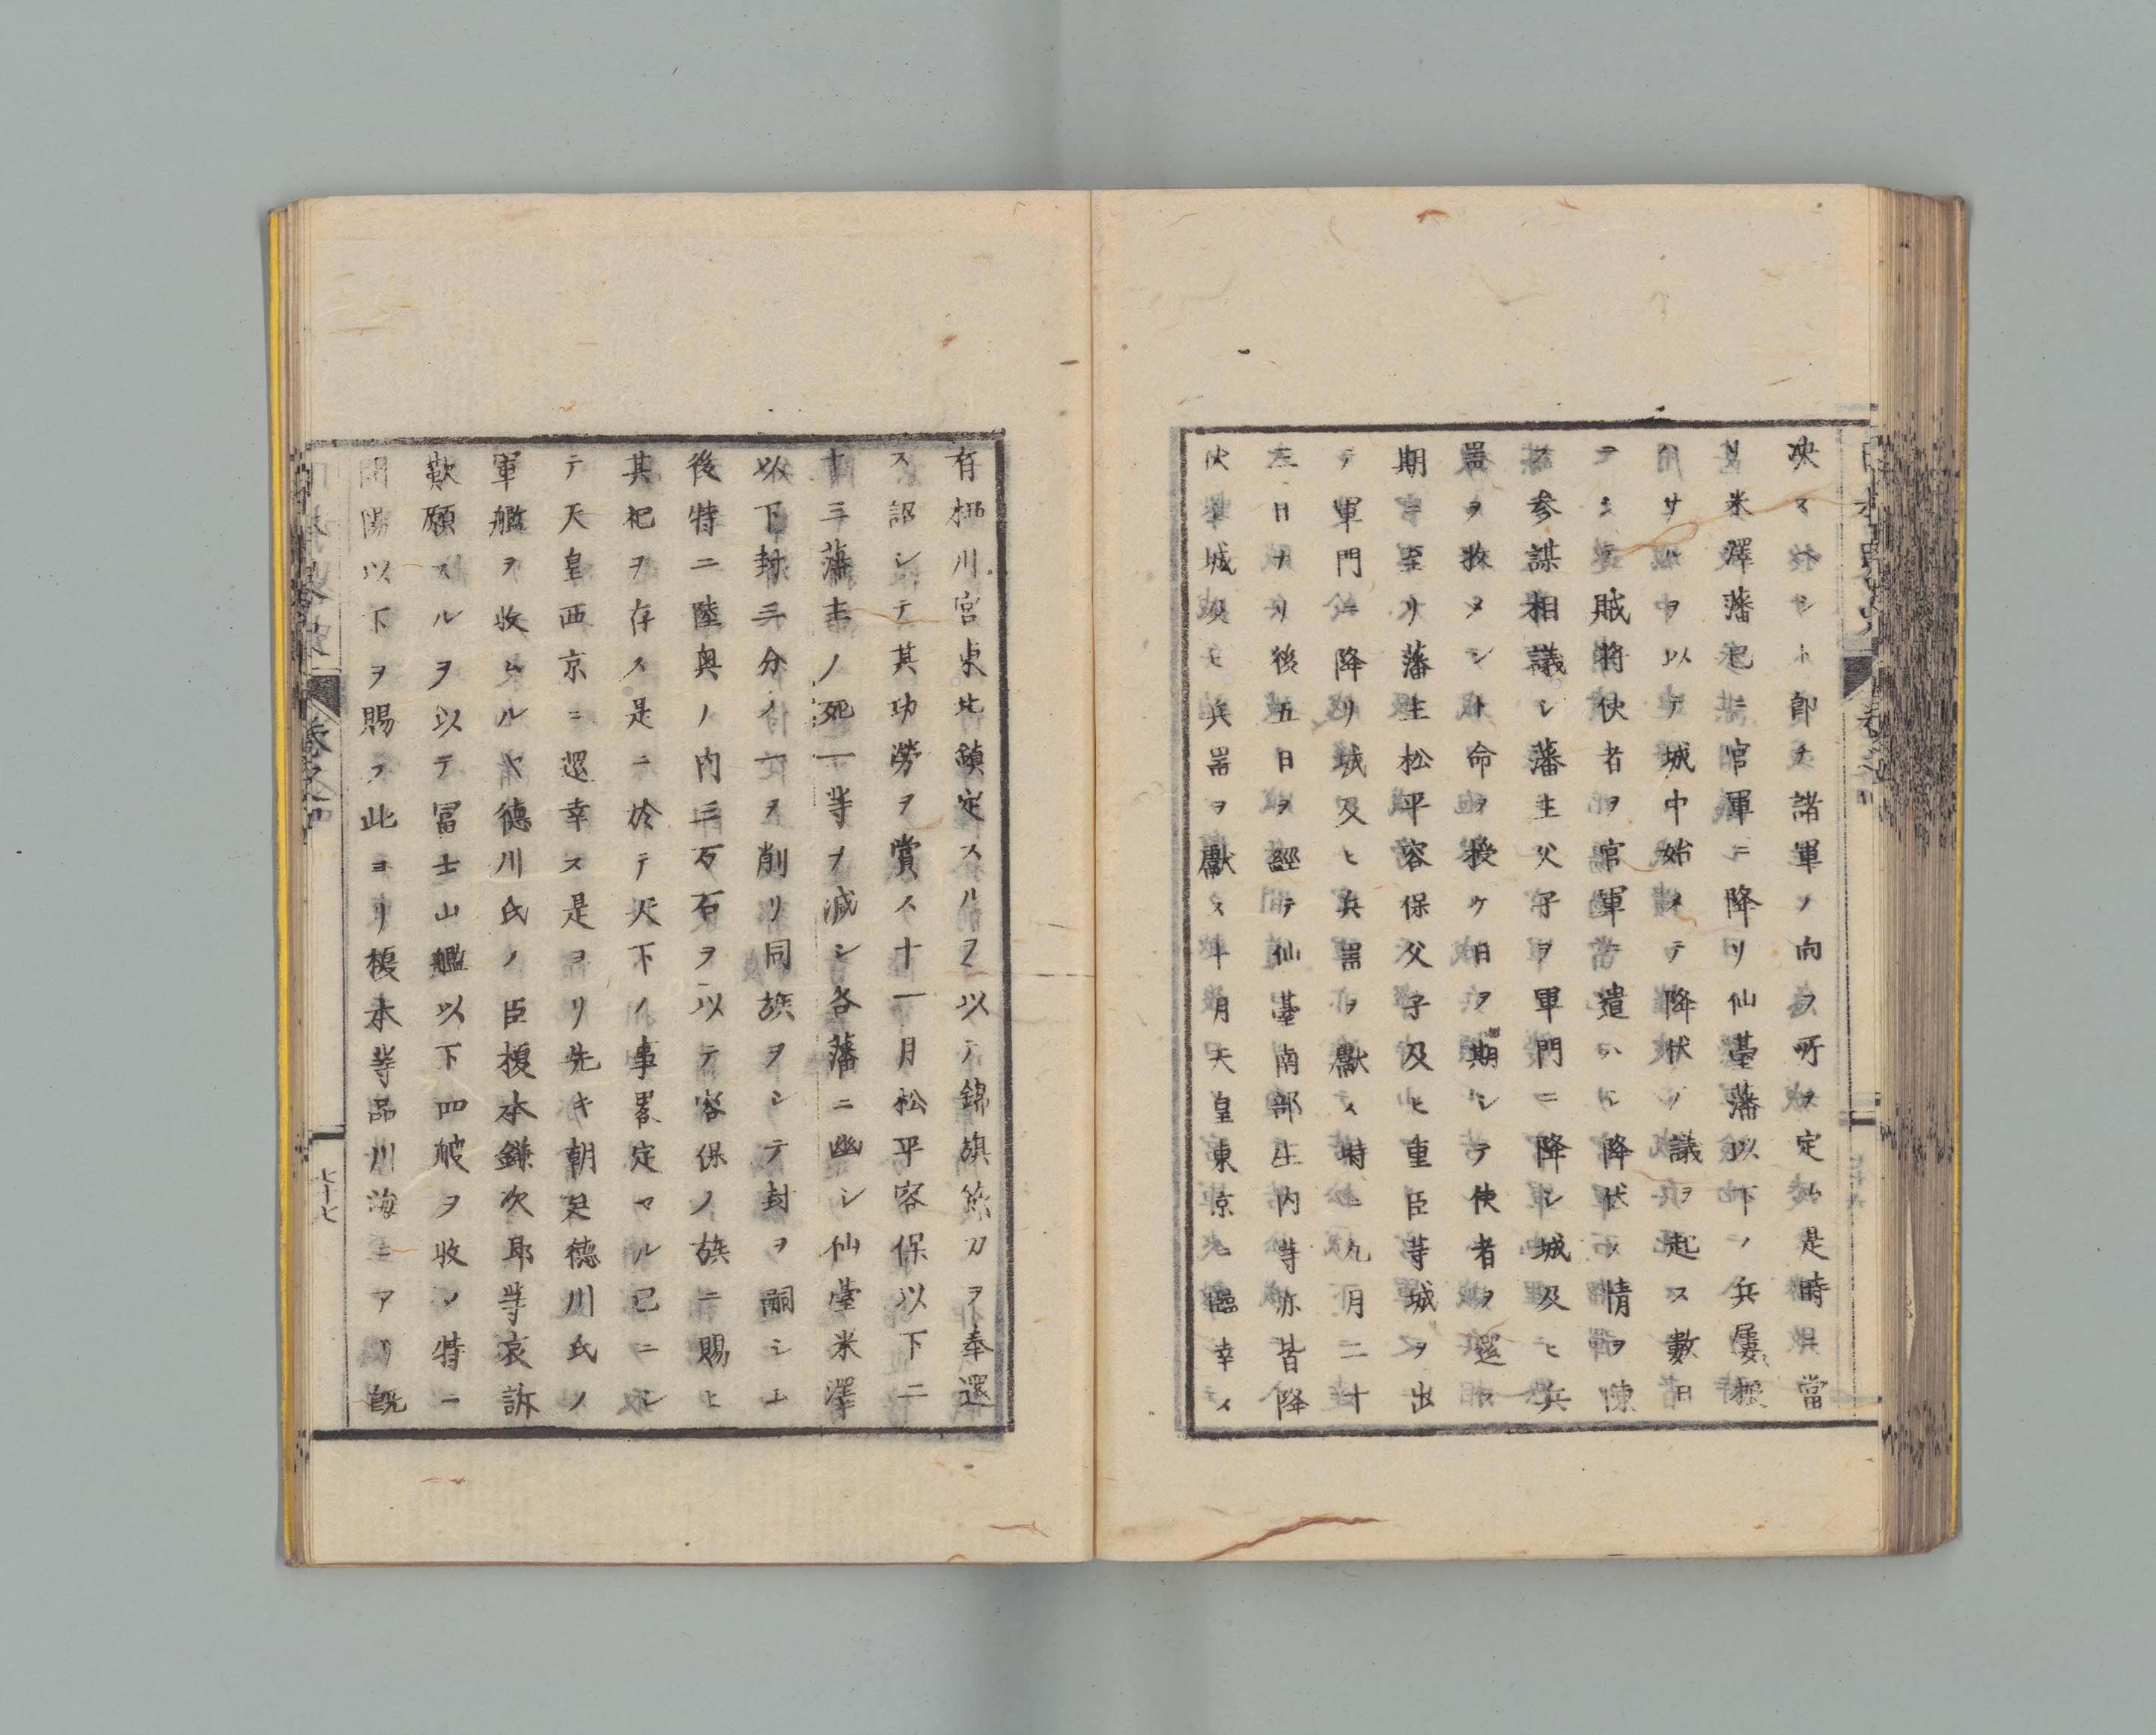 決ス於シト即チ諸軍ノ向フ所ヲ定ム是時ニ當
リ米澤藩已ニ官軍ニ降リ仙臺藩以下ノ兵屢振
サルヲ以テ城中始メテ降伏ノ議ヲ起ス數日
ニシ賊將使者ヲ官軍ニ遣ハシ降伏ノ情ヲ陳
ス参謀相議シ藩主父子ヲ軍門ニ降シ城及ヒ兵
器ヲ收メシト命ヲ授ケ日ヲ期シテ使者ヲ還ス
期ニ至リ藩主松平容保父子及ヒ重臣等城ヲ出
テ軍門ニ降リ城及ヒ兵器ヲ獻ス時ニ九月二十
三日ナリ後五日ヲ經テ仙臺南部庄内等亦皆降
伏シ城及ヒ兵器ヲ獻ス十月天皇東京ニ臨幸ス
有栖川宮東北鎮定スルヲ以テ錦旗節刀ヲ奉還
ス詔シテ其功勞ヲ賞ス十一月松平容保以下二
十三藩主ノ死一等ヲ減シ各藩ニ幽シ仙臺米澤
以下封三分ノ一ヲ削リ同族ヲシテ封ヲ嗣シム
後特ニ陸奥ノ内三万石ヲ以テ容保ノ族ニ賜ヒ
其祀ヲ存ス是ニ於テ天下ノ事畧定マル已ニシ
テ天皇西京ニ還幸ス是ヨリ先キ朝廷德川氏ノ
軍艦ヲ收ムルヤ德川氏ノ臣榎本鎌次郎等哀訴
歎願スルヲ以テ冨士山艦以下四艘ヲ收メ特ニ
開陽以下ヲ賜フ此ヨリ榎本等品川海ニアリ既
七十七